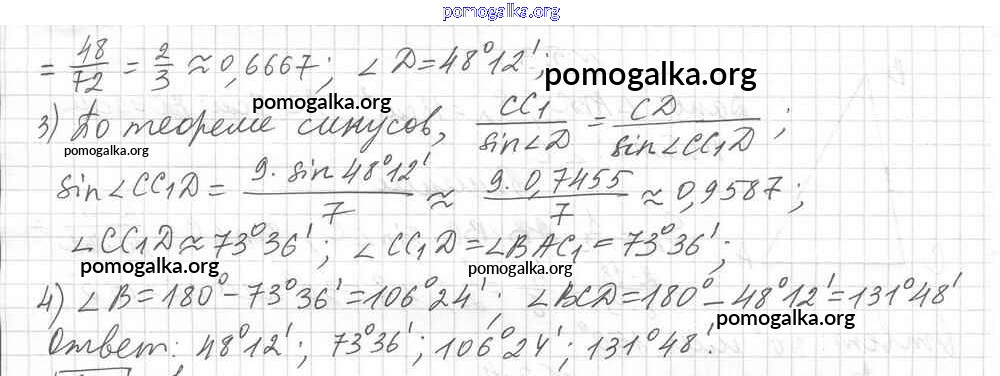 pomogalka.org
= 48/72 = 2/3 ≈ 0,6667; ∠D = 48°12';
pomogalka.org
pomogalka.org
3) По теореме синусов, CC1/sin∠D = CD/sin∠CC1D;
pomogalka.org
sin∠CC1D = 9·sin48°12'/7 ≈ 9·0,7455/7 ≈ 0,9587;
∠CC1D ≈ 73°36'; ∠CC1D = ∠BAC1 = 73°36';
pomogalka.org
pomogalka.org
4) ∠B = 180° - 73°36' = 106°24'; ∠BCD = 180° - 48°12' = 131°48'
pomogalka.org
Ответ: 48°12'; 73°36'; 106°24'; 131°48'.